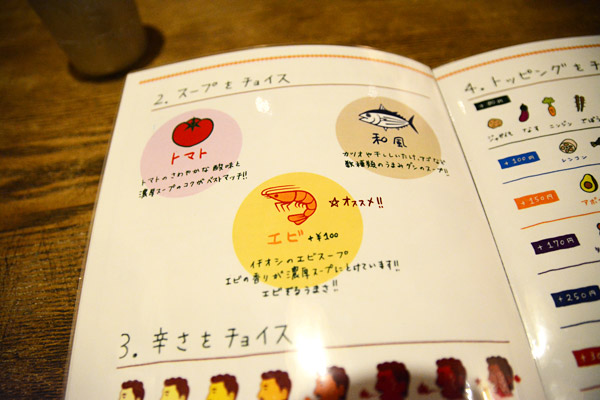 2. スープをチョイス
トマト
トマトのさわやかな酸味と
濃厚スープのコクがベストマッチ!!
和風
カツオや干ししいたけ、コブなど
数種類のうまみダシのスープ!!
☆オススメ!!
エビ +¥100
イチオシのエビスープ
エビの香りが濃厚スープにとけています!!
エビぞるうまさ!!
3. 辛さをチョイス
4. トッピングをチ
じゃがいも
なす
ニンジン
+100円
レンコン
+150円
アボ
+170円
+250円